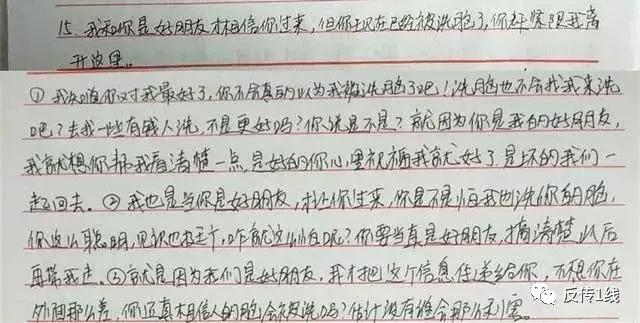 15. 我和你是好朋友才相信你过来，但你现在已经被洗脑了，你赶紧跟我离
开这里。
①我知道你对我最好了，你不会真的以为我被洗脑了吧！洗脑也不会找我来洗
吧？去找一些有钱人洗，不是更好吗？你说是不是？就因为你是我的好朋友，
我就想你帮我看清楚一点，是好的你心里祝福我就好了，是坏的我们一
起回去。②我也是当你是好朋友，才让你过来，你是不是怕我也洗你的脑，
你这么聪明，见识也挺广，咋就这么怕呢？你要当真是好朋友，搞清楚以后
再带我走。③就是因为我们是好朋友，我才把这个信息传递给你，不想你在
外面那么差，你还真相信人的脑会被洗吗？估计没有谁会那么利害。
反传1线